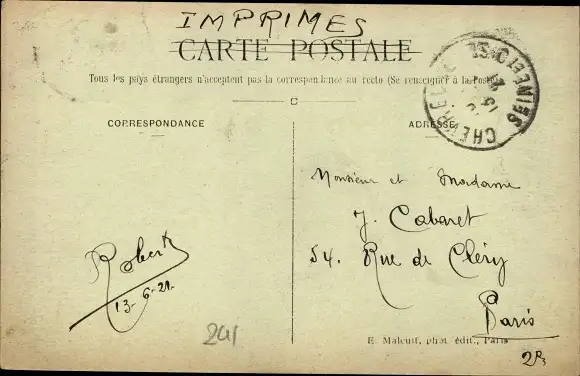 IMPRIMES
CARTE POSTALE
Tous les pays étrangers n'acceptent pas la correspondance au recto (Se renseigner à la Poste)
CORRESPONDANCE
ADRESSE
SEINE ET OISE
Monsieur et Madame
J. Cabaret
54. Rue de Cléry
Paris
Robert
13-6-21.
241
E. Malcuit, phot. édit., Paris